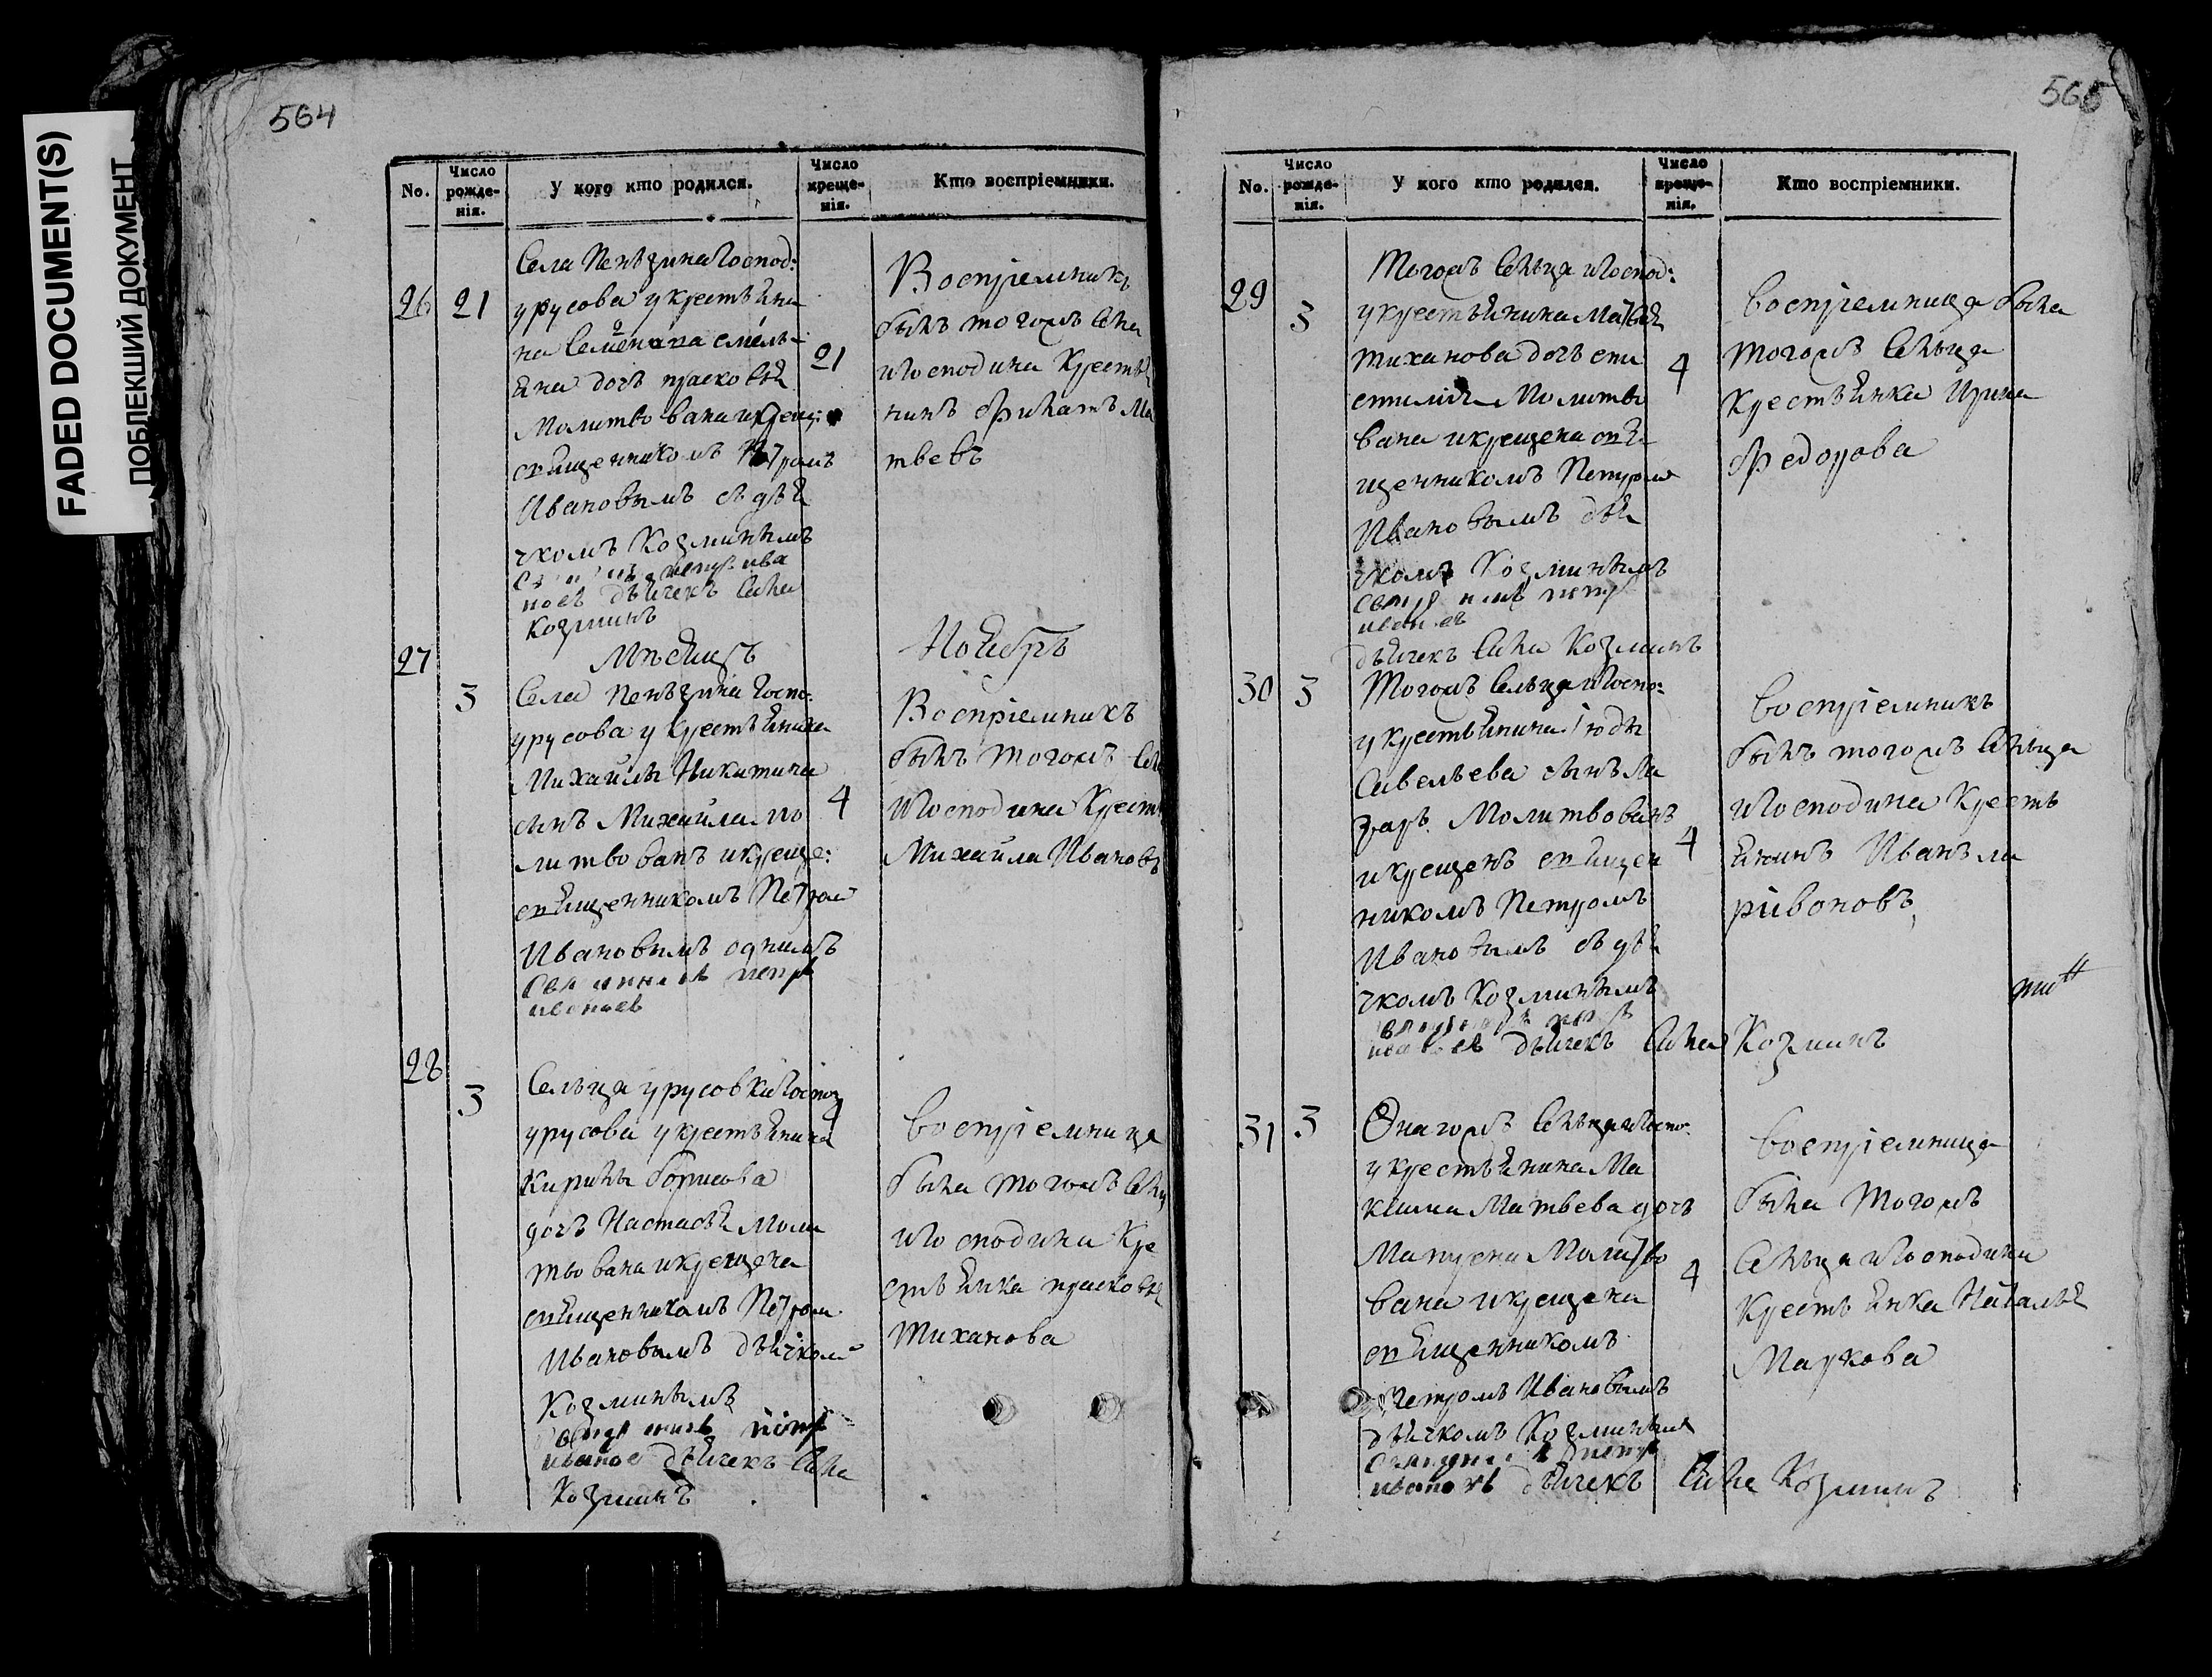 FADED DOCUMENT(S)
ПОБЛЕКШИЙ ДОКУМЕНТ
564
No.
Число рожденія.
У кого кто родился.
Число крещенія.
Кто воспріемники.
26
21
Села Пенѣзина Господ:
урусова укрестьяни
на
дочь прасковья
Молитвована икрещ:
священникомъ Петромъ
Ивановымъ съ дья
чкомъ Козминымъ
ива
новъ дьячекъ Сила
Козминъ
21
Воспріемникъ
былъ тогожъ села
игосподина крестья
нинъ Филатъ Ма
твевъ
27
Мѣсяцъ
Ноябрь
3
Села Пенѣзина Госпо:
урусова у крестьянина
Михайлы Никитина
сынъ Михайла мо
литвованъ икреще:
священникомъ Петром
Ивановымъ однимъ
петръ
ивановъ
4
Воспріемникъ
былъ тогожъ села
игосподина крестья
Михайла Ивановъ
28
3
Сельца урусовки Господ
урусова укрестьянина
Кирилы Борисова
дочь Настасья моли
твована икрещена
священникомъ Петром
Ивановымъ дьячком
Козминымъ
петръ
иванов дьячекъ Сила
Козминъ
4
Воспріемница
была тогожъ сельц
игосподина кре
стьянка прасковья
Тиханова
565
No.
Число рожденія.
У кого кто родился.
Число крещенія.
Кто воспріемники.
29
3
Тогожъ Сельца игоспод:
укрестьянина Матвея
тиханова дочь епи
Молитво
вана икрещена свя
щенникомъ Петромъ
Ивановымъ дья
чкомъ Козминымъ
петръ
ивановъ
дьячекъ Сила Козминъ
4
Воспріемница была
тогожъ Сельца
Крестьянка Ирина
Федорова
30
3
Тогожъ Сельца игоспо:
укрестьянина Іюды
Савельева сынъ Ла
зарь Молитвованъ
икрещенъ священ
никомъ Петромъ
Ивановымъ съ дья
чкомъ Козминымъ
петръ
ивановъ дьячекъ Сила Козминъ
4
Воспріемникъ
былъ тогожъ сельца
игосподина крестья
янинъ Иванъ ла
ривоновъ
31
3
Онагожъ Сельца игоспо:
укрестьянина Ма
ксима Матвева дочь
Матрена Молитво
вана икрещена
священникомъ
Петромъ Ивановымъ
дьячкомъ Козминым
петръ
ивановъ дьячекъ Сила Козминъ
4
Воспріемница
была тогожъ
Сельца игосподина
Крестьянка Наталья
Маркова